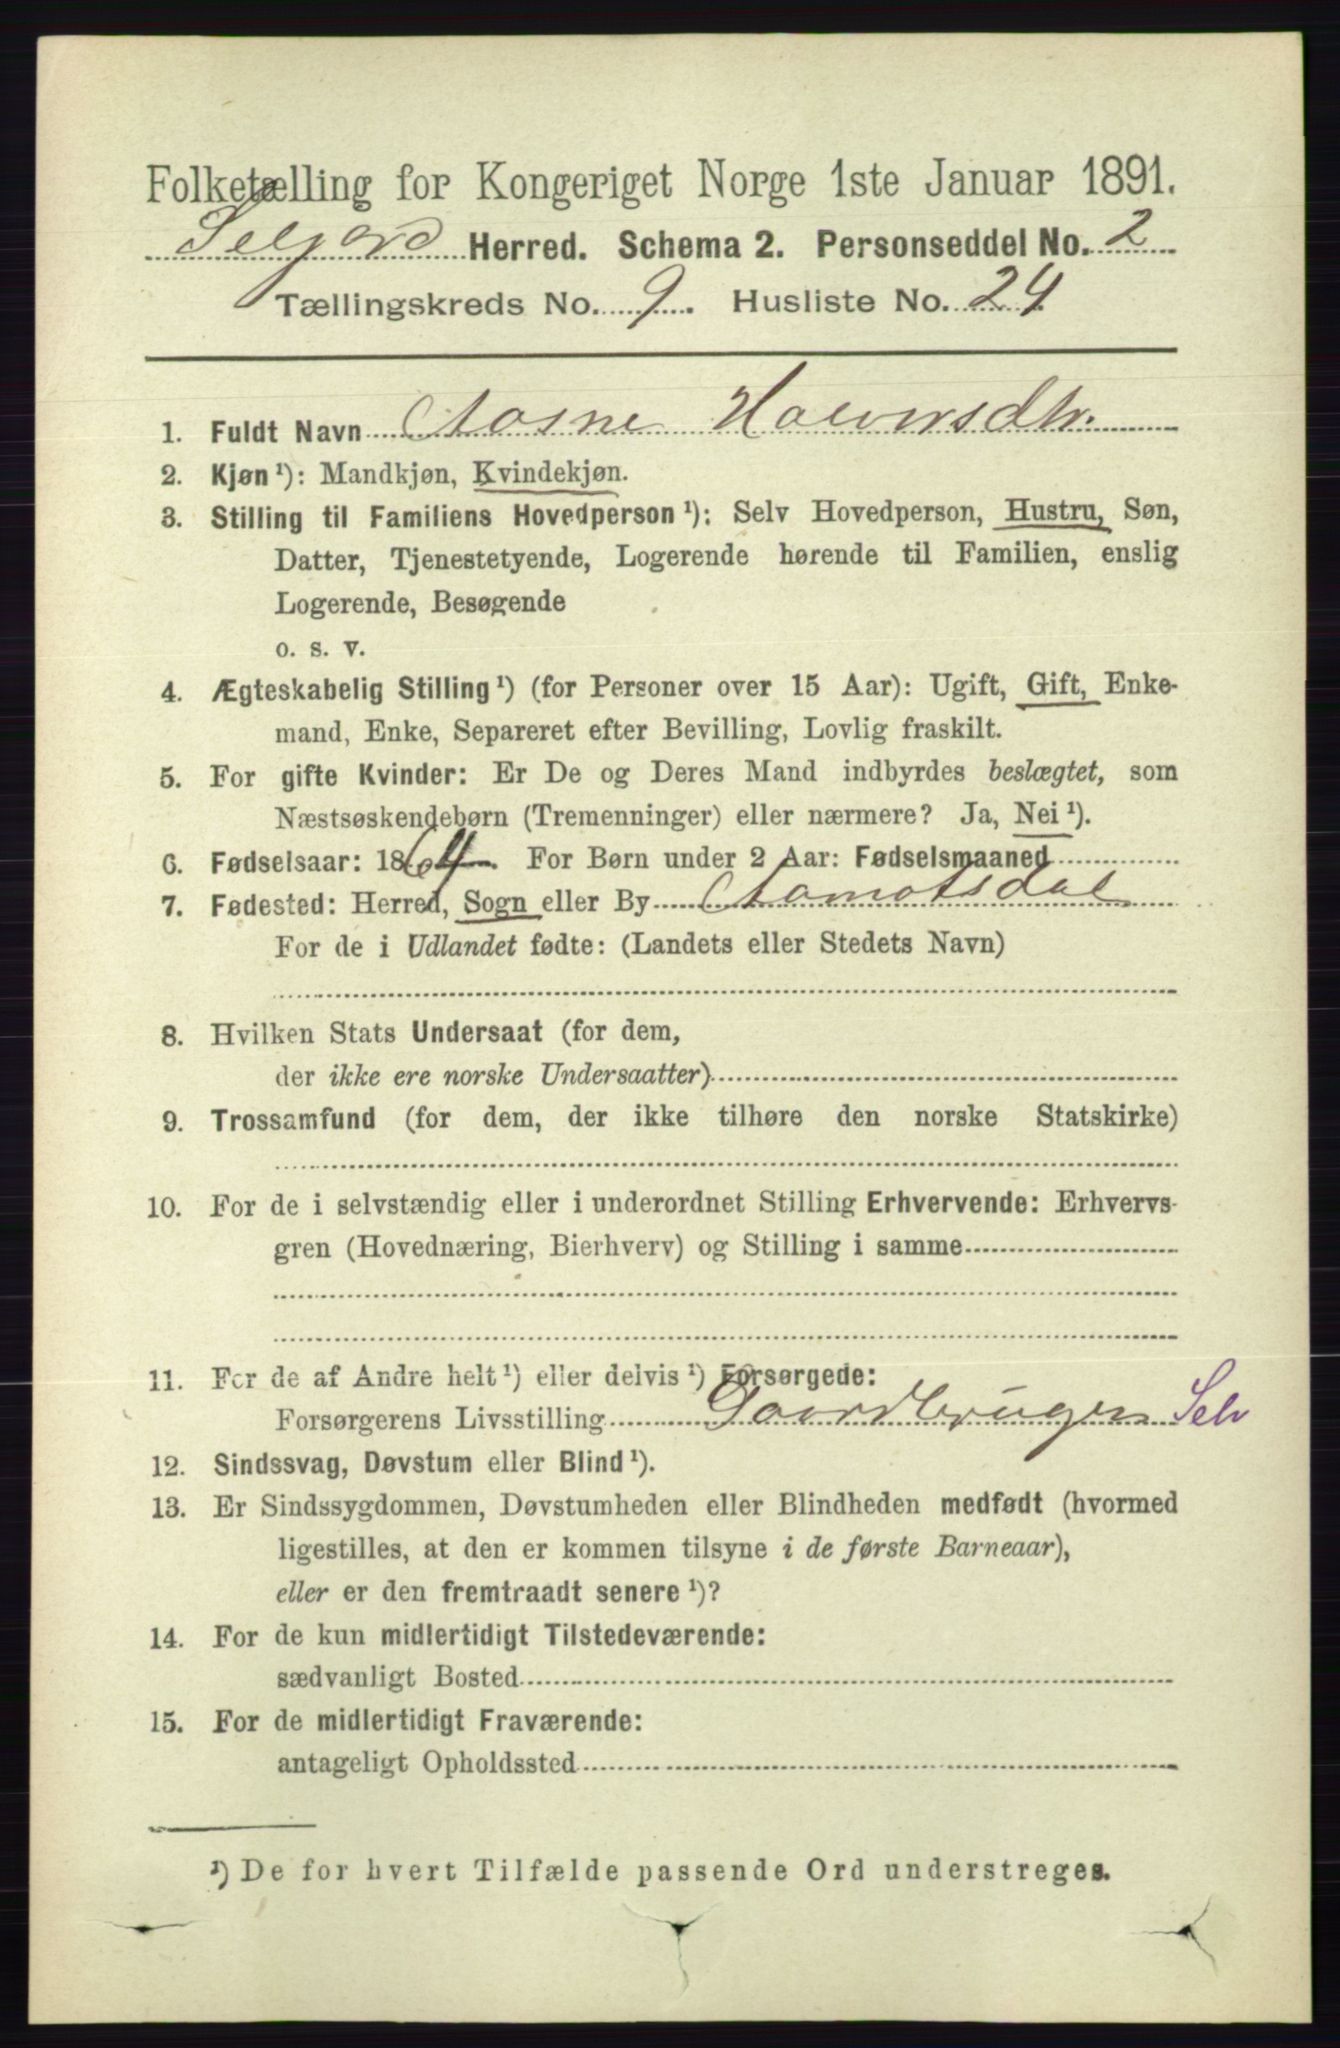 Folketælling for Kongeriget Norge 1ste Januar 1891.
Seljord Herred. Schema 2. Personseddel No. 2
Tællingskreds No. 9. Husliste No. 24
1. Fuldt Navn Aasne Halvorsdtr.
2. Kjøn¹): Mandkjøn, Kvindekjøn.
3. Stilling til Familiens Hovedperson¹): Selv Hovedperson, Hustru, Søn,
Datter, Tjenestetyende, Logerende hørende til Familien, enslig
Logerende, Besøgende
o. s. v.
4. Ægteskabelig Stilling¹) (for Personer over 15 Aar): Ugift, Gift, Enke-
mand, Enke, Separeret efter Bevilling, Lovlig fraskilt.
5. For gifte Kvinder: Er De og Deres Mand indbyrdes beslægtet, som
Næstsøskendebørn (Tremenninger) eller nærmere? Ja, Nei¹).
6. Fødselsaar: 1864. For Børn under 2 Aar: Fødselsmaaned
7. Fødested: Herred, Sogn eller By Aamotsdal
For de i Udlandet fødte: (Landets eller Stedets Navn)
8. Hvilken Stats Undersaat (for dem,
der ikke ere norske Undersaatter)
9. Trossamfund (for dem, der ikke tilhøre den norske Statskirke)
10. For de i selvstændig eller i underordnet Stilling Erhvervende: Erhvervs-
gren (Hovednæring, Bierhverv) og Stilling i samme
11. For de af Andre helt¹) eller delvis¹) Forsørgede:
Forsørgerens Livsstilling Gaardbruger Selv
12. Sindssvag, Døvstum eller Blind¹).
13. Er Sindssygdommen, Døvstumheden eller Blindheden medfødt (hvormed
ligestilles, at den er kommen tilsyne i de første Barneaar),
eller er den fremtraadt senere¹)?
14. For de kun midlertidigt Tilstedeværende:
sædvanligt Bosted
15. For de midlertidigt Fraværende:
antageligt Opholdssted
¹) De for hvert Tilfælde passende Ord understreges.